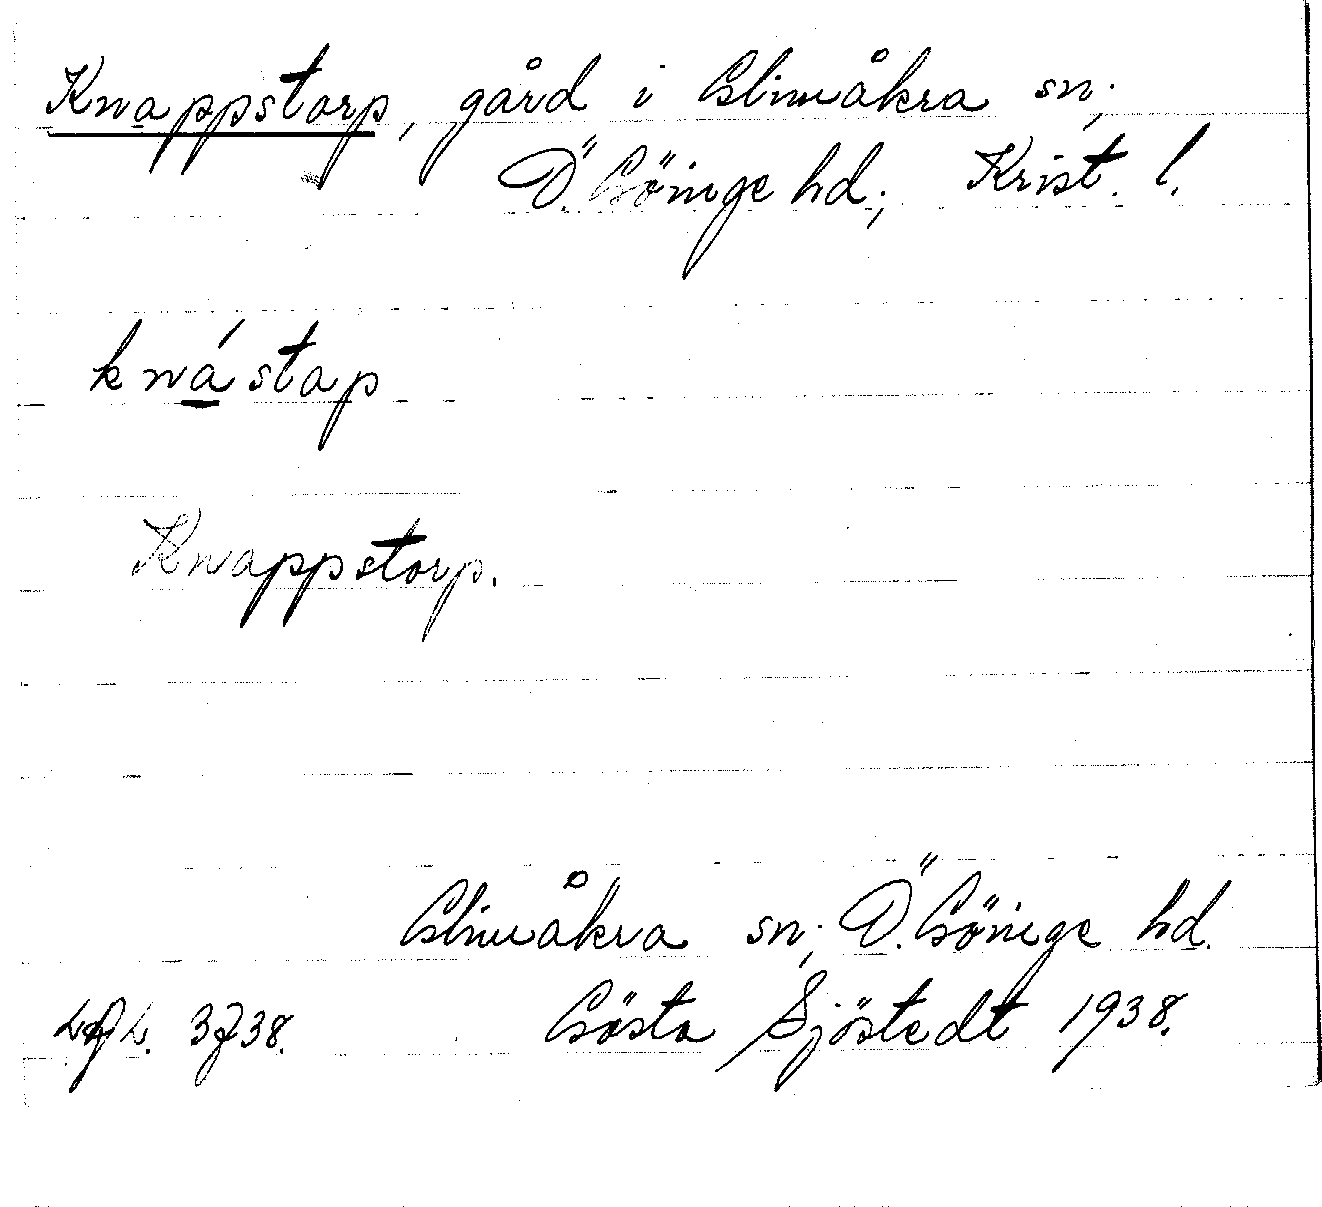 Knappstorp, gård i Glimåkra sn;
Ö. Göinge hd; Krist. l.
knástap
Knappstorp.
Glimåkra sn; Ö. Göinge hd.
Gösta Sjöstedt 1938.